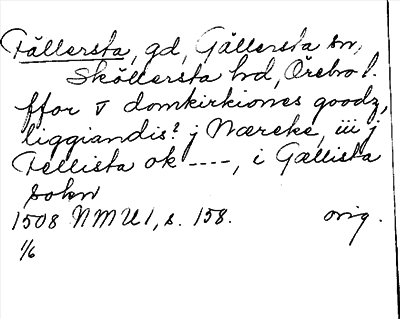 Fällersta, gd, Gällersta sn,
Sköllersta hd, Örebro l.
ffor v domkirkiones goodz,
liggiandis? j Næreke, iii j
Fellista ok ----, i Gællista
sokn
1508 NMU 1, s. 158. orig.
1/6